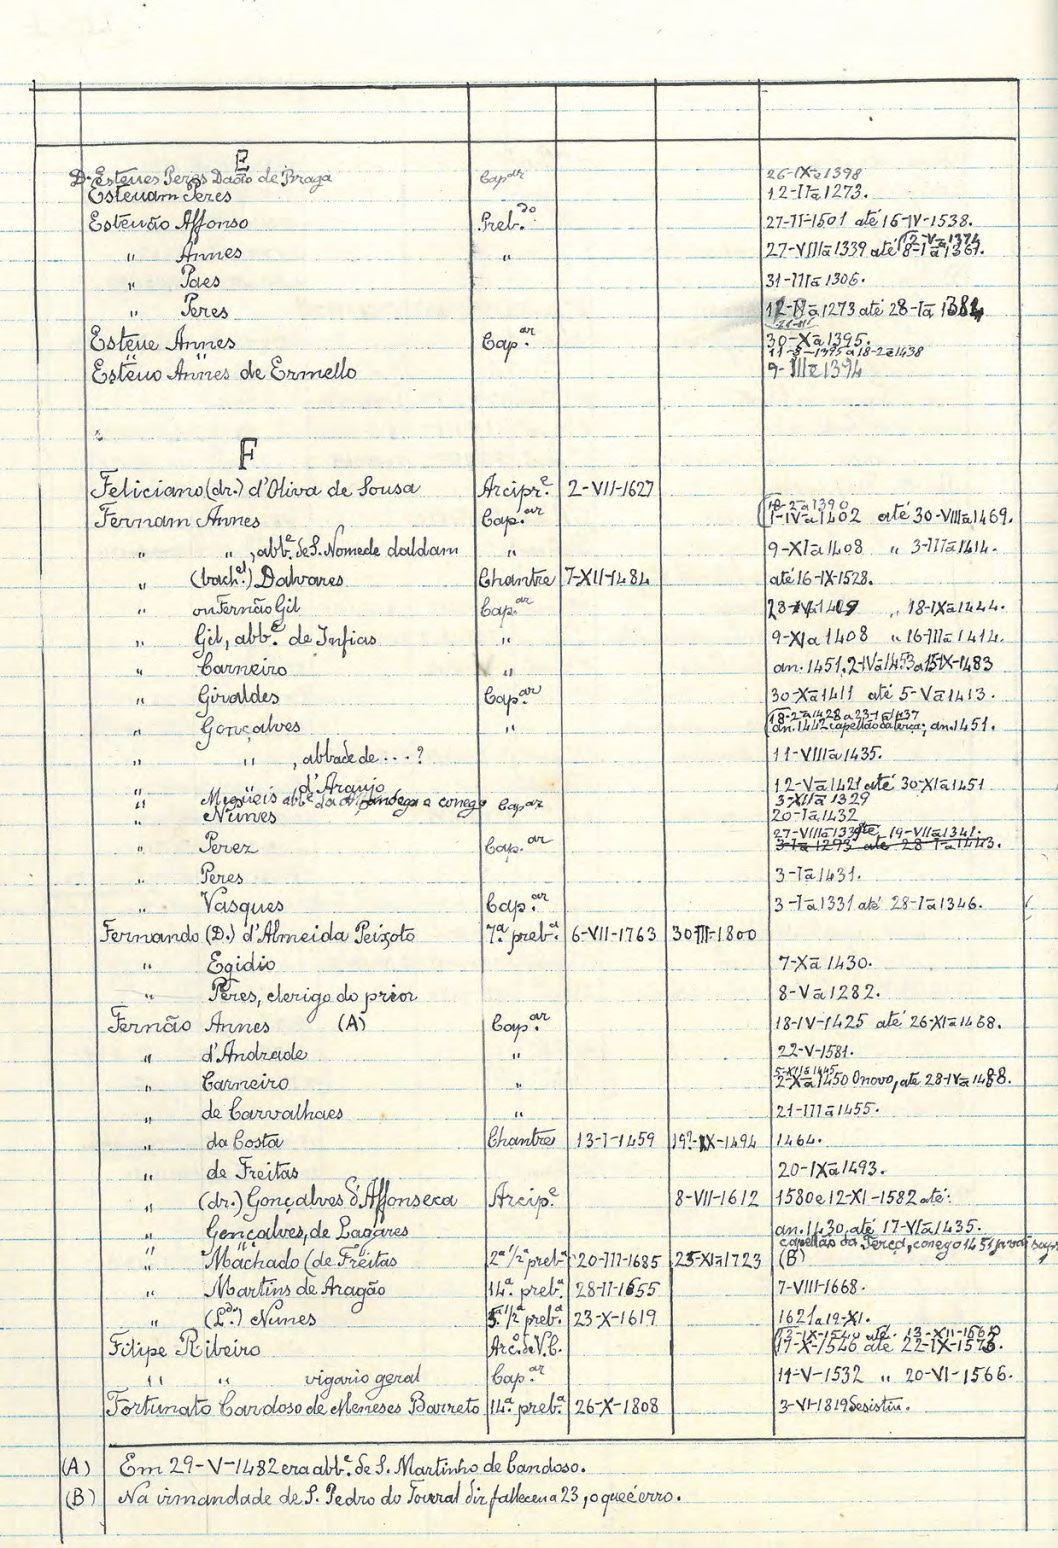 E
D. Esteves Peres Daõio de Braga Cap.ar 26-IXa 1398
Estevam Peres 12-IIa 1273.
Estevão Affonso Preb.do 27-II-1501 até 16-IV-1538.
" Annes " 27-VIIIa 1339 até 8-Iª 1367. 12-Va 1374
" Paes 31-IIIa 1306.
" Peres 12-IIa 1273 até 28-Ia 1384
Esteve Annes Cap.ar 30-Xa 1395.
11-5-1395 a 18-2-a 1438
Estevo Annes de Ermello 9-IIIa 1394
F
Feliciano (dr.) d'Oliva de Sousa Arcipr.e 2-VII-1627
Fernam Annes Cap.ar 18-2-a 1390
1-IVa 1402 até 30-VIIIa 1469.
" " , abb.e de S. Nomede daldam " 9-XIa 1408 " 3-IIIa 1414.
" (bach.el) Dalvares Chantre 7-XII-1484 até 16-IX-1528.
" ou Fernão Gil Cap.ar 23-IVa 1429 " 18-IXa 1444.
" Gil, abb.e de Infias " 9-XIa 1408 " 16-IIIa 1414.
" Carneiro " an. 1451, 2-IVa 1453 a 15-IX-1483
" Giraldes Cap.ar 30-Xa 1411 até 5-Va 1413.
" Gonçalves " 18-2-a 1428 a 23-1-a 1437
an. 1442 capellão da terça; an. 1451.
" " , abbade de ....? 11-VIIIa 1435.
" d'Araujo 12-Va 1421 até 30-XIa 1451
" Migueis abb.e e conego Cap.ar 3-XIIa 1329
" Nunes 20-Ia 1432
" Perez Cap.ar 27-VIIIa 1339 até 19-VIIa 1341.
3-Ia 1293 até 28-Ia 1443.
" Peres 3-Ia 1431.
" Vasques Cap.ar 3-Ia 1331 até 28-Ia 1346.
Fernando (D.) d'Almeida Peixoto 7.ª preb.ª 6-VII-1763 30-III-1800
" Egidio 7-Xa 1430.
" Peres, clerigo do prior 8-Va 1282.
Fernão Annes (A) Cap.ar 18-IV-1425 até 26-XIa 1468.
" d'Andrade " 22-V-1581.
" Carneiro " 5-XIIa 1445
2-Xa 1450 O novo, até 28-IVa 1488.
" de Carvalhaes " 21-IIIa 1455.
" da Costa Chantre 13-I-1459 19?-IX-1494 1464.
" de Freitas 20-IXa 1493.
" (dr.) Gonçalves d'Affonseca Arcip.e 8-VII-1612 1580 e 12-XI-1582 até:
" Gonçalves, de Lagares an. 1430, até 17-VIa 1435.
capellão da Terça, conego 1451
" Machado (de Freitas 2ª ½ preb.ª 20-III-1685 25-XIa 1723 (B)
" Martins de Aragão 14.ª preb.ª 28-II-1655 7-VIII-1668.
" (L.do) Nunes 5.ª ½ preb.ª 23-X-1619 1621 a 19-XI.
Filipe Ribeiro Arc.o de V.C. 13-IX-1540 até 13-XII-1569
17-X-1546 até 22-IX-1573.
" " vigario geral Cap.ar 11-V-1532 " 20-VI-1566.
Fortunato Cardoso de Meneses Barreto 14.ª preb.ª 26-X-1808 3-VI-1819 desistiu.
(A) Em 29-V-1482 era abb.e de S. Martinho de Candoso.
(B) Na irmandade de S. Pedro do Toural diz falleceu a 23, o que é erro.